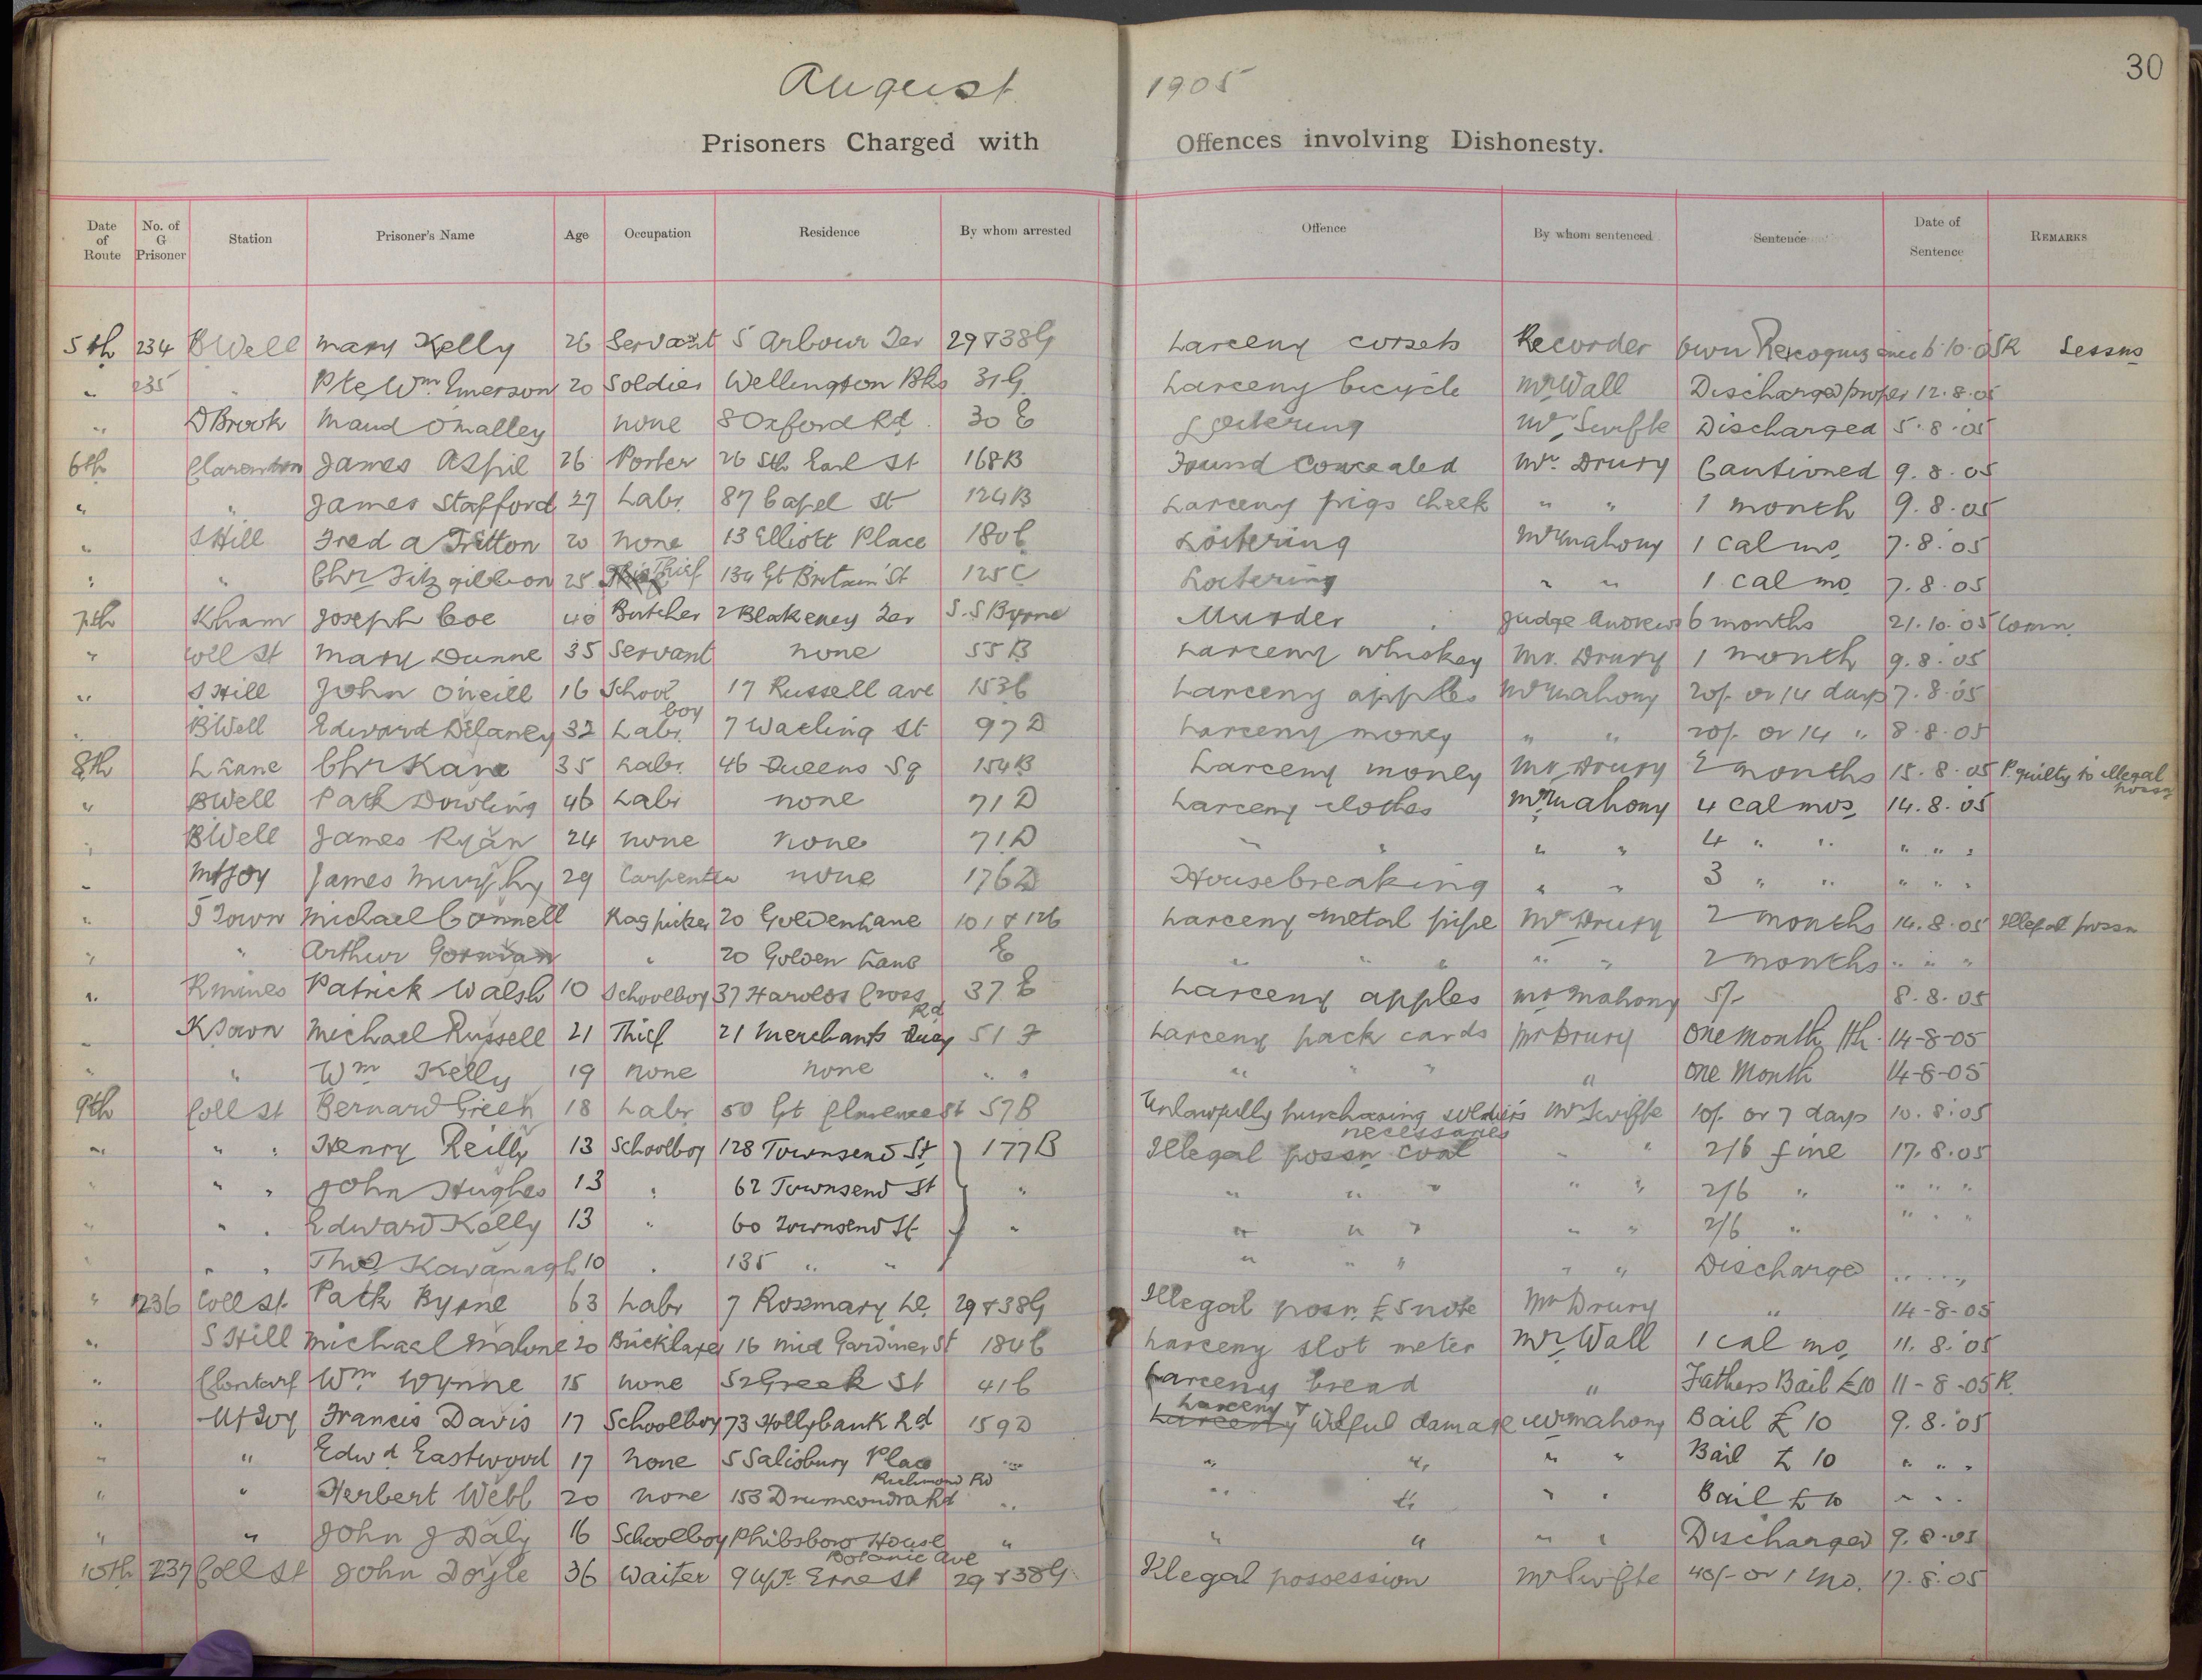 30
August 1905
Prisoners Charged with Offences involving Dishonesty.
Date of Route No. of G Prisoner Station Prisoner's Name Age Occupation Residence By whom arrested Offence By whom sentenced Sentence Date of Sentence REMARKS
5th 234 BWell Mary Kelly 26 Servant 5 Arbour Ter 29 & 38G Larceny corsets Recorder Own Recognizance 6.10.05 R Sessns
" 235 " Pte Wm. Emerson 20 Soldier Wellington Bks 31G. Larceny bicycle Mr Wall Discharged 12.8.05
" DBrook Maud O'Malley none 8 Oxford Rd. 30 E Loitering Mr Swifte Discharged 5.8.05
6th Clarenton James Aspil 26 Porter 26 Sth Earl St 168B Found Concealed Mr. Drury Cautioned 9.8.05
" " James Stafford 27 Labr. 87 Capel St 124B Larceny pigs cheek " " 1 month 9.8.05
" SHill Fred A Tritton 20 none 13 Elliott Place 180C Loitering Mr Mahony 1 cal mo. 7.8.05
" " Chr Fitzgibbon 25 Thief 134 Gt Britain St 125C Loitering " " 1 cal mo 7.8.05
7th Kham Joseph Coe 40 Butcher 2 Blakeney Ter S.S Byrne Murder Judge Andrews 6 months 21.10.05 Comn.
" Coll St Mary Dunne 35 Servant none 55B Larceny whiskey Mr. Drury 1 month 9.8.05
" SHill John O'Neill 16 School boy 17 Russell ave 153C Larceny apples Mr Mahony 20/- or 14 days 7.8.05
" BWell Edward Delaney 32 Labr. 7 Watling St 97D Larceny money " " 20/- or 14 " 8.8.05
8th L Lane Chr Kane 35 Labr. 46 Queens Sq 154B Larceny money Mr Drury 2 months 15.8.05 P. guilty to illegal possn
" BWell Patk Dowling 46 Labr none 71D Larceny clothes Mr Mahony 4 cal mos. 14.8.05
" BWell James Ryan 24 none none 71D " " " " 4 " " " " "
" Mtjoy James Murphy 29 Carpenter none 176D Housebreaking " " 3 " " " " "
" Town Michael Connell Ragpicker 20 Golden Lane 101 & 126 Larceny metal pipe Mr Drury 2 months 14.8.05 Illegal possn
" " Arthur Gorman " 20 Golden Lane E " " " " " 2 months " " "
" Rmines Patrick Walsh 10 Schoolboy 37 Harolds Cross Rd 37 E Larceny apples Mr Mahony 5/- 8.8.05
" KTown Michael Russell 21 Thief 21 Merchants Quay 51 F Larceny pack cards Mr Drury One month Hh. 14-8-05
" " Wm Kelly 19 none none " " " " " " One Month 14-8-05
9th Coll St Bernard Green 18 Labr 50 Gt Clarence St 57B Unlawfully purchasing soldiers necessaries Mr Swifte 10/- or 7 days 10.8.05
" " " Henry Reilly 13 Schoolboy 128 Townsend St 177B Illegal possn coal " " 2/6 fine 17.8.05
" " " John Hughes 13 " 62 Townsend St " " " " " " 2/6 " " " "
" " " Edward Kelly 13 " 60 Townsend St " " " " " " 2/6 " " " "
" " " Thos Kavanagh 10 " 135 " " " " " " " Discharged " " "
" 236 Coll St. Patk Byrne 63 Labr 7 Rosemary Le. 29 & 38G Illegal possn. £5 note Mr Drury " 14-8-05
" S Hill Michael Malone 20 Bricklayer 16 Mid Gardiner St 180C Larceny slot meter Mr Wall 1 cal mo. 11.8.05
" Clontarf Wm Wynne 15 none 52 Greek St 41C Larceny bread " Fathers Bail £10 11-8-05 R.
" Mtjoy Francis Davis 17 Schoolboy 73 Hollybank Rd 159D Larceny Larceny & Wilful damage Mr Mahony Bail £10 9.8.05
" " Edwd Eastwood 17 none 5 Salisbury Place Richmond Rd " " " " " Bail £ 10 " " "
" " Herbert Webb 20 none 153 Drumcondra Rd " " " " " Bail £10 " " "
" " John J Daly 16 Schoolboy Phibsboro House Botanic Ave " " " " " Discharged 9.8.05
10th 237 Coll St John Doyle 36 Waiter 9 Upr. Erne St 29 & 38G Illegal possession Mr Swifte 40/- or 1 mo. 17.8.05